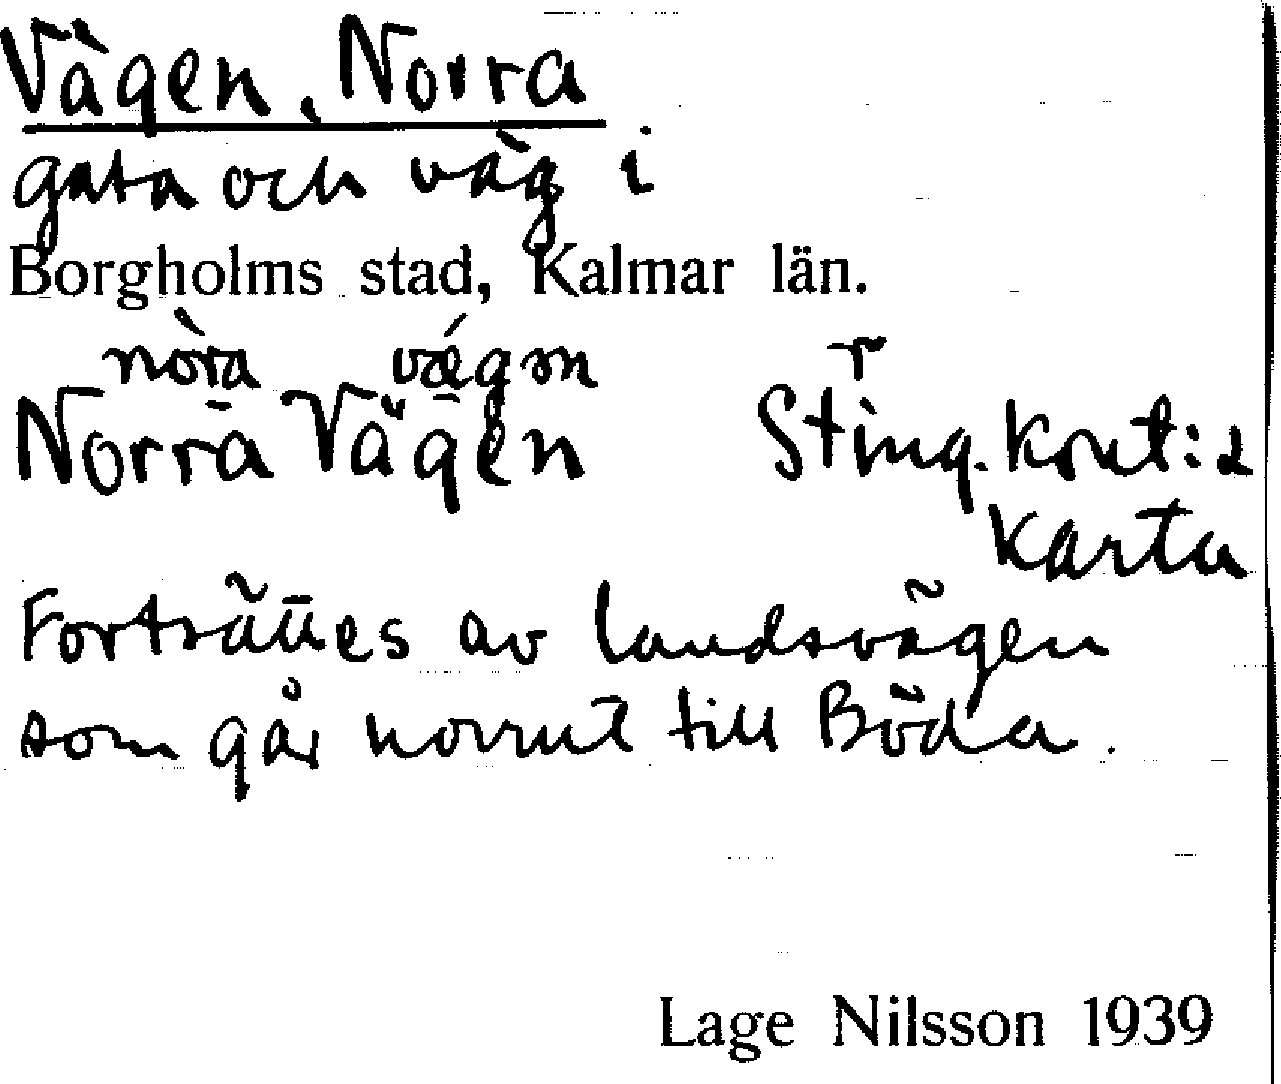 Vägen, Norra
gata och väg i
Borgholms stad, Kalmar län.
nòra vǽgən
Norra Vägen Stinq. kont:s
karta
Fortsättes av landsvägen
som går norrut till Böda.
Lage Nilsson 1939